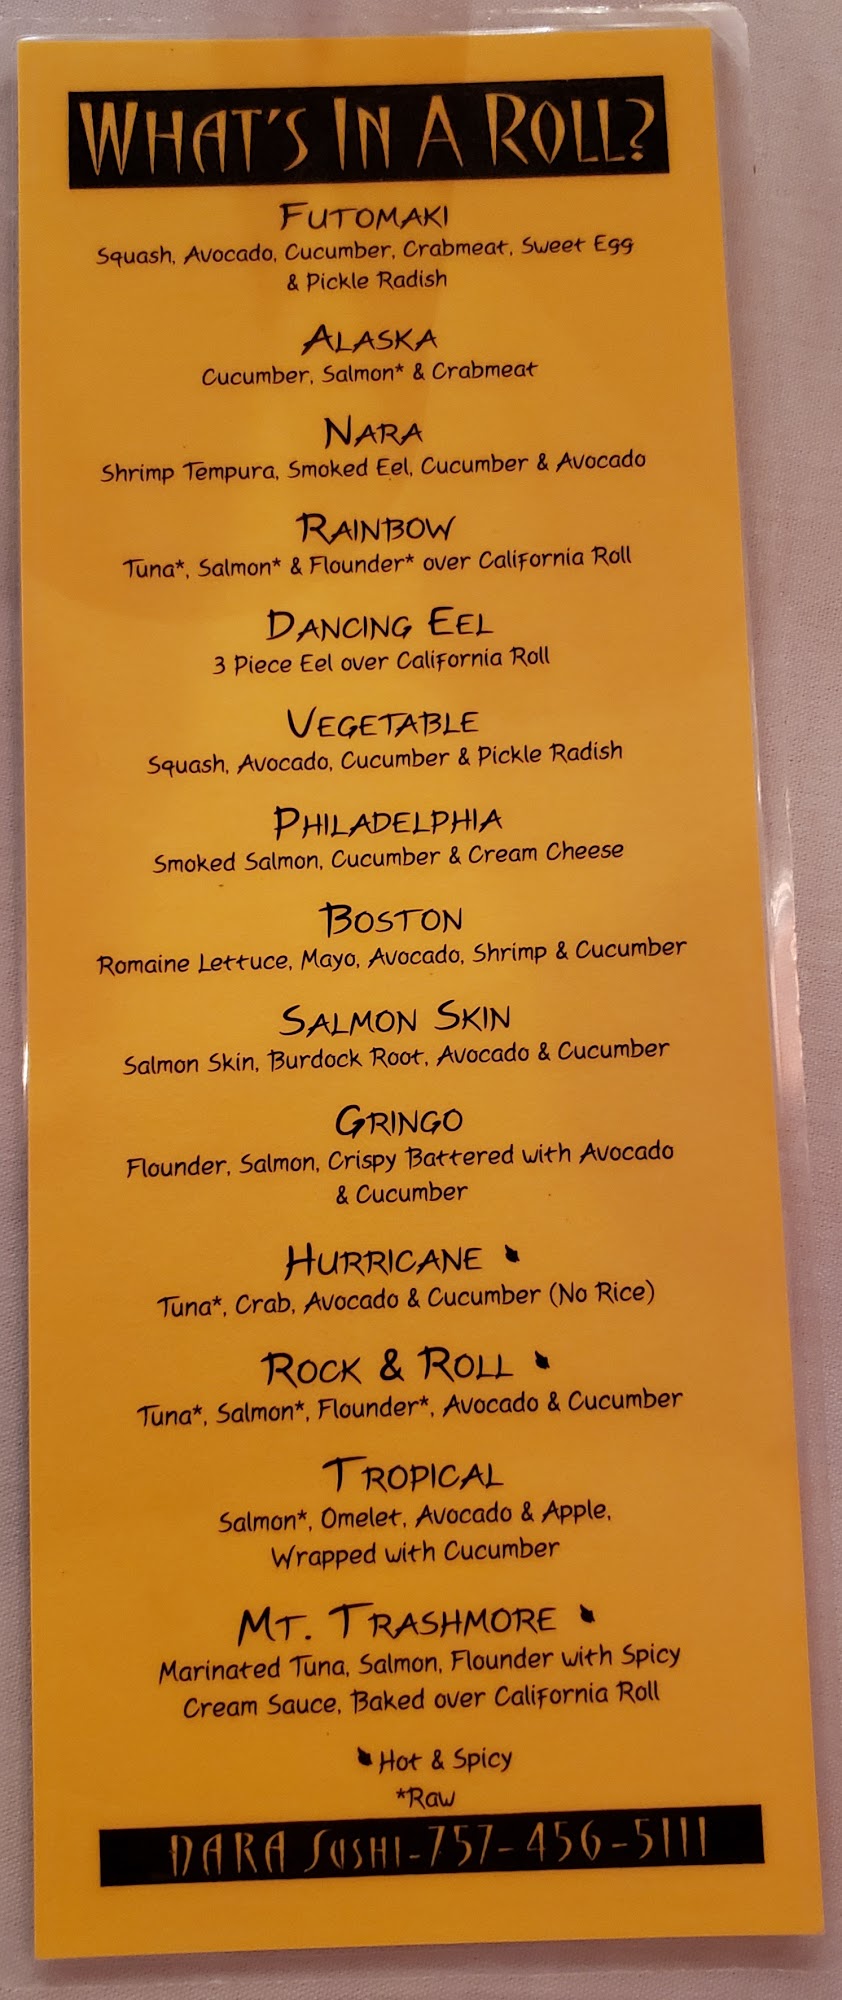 WHAT'S IN A ROLL?
FUTOMAKI
Squash, Avocado, Cucumber, Crabmeat, Sweet Egg
& Pickle Radish
ALASKA
Cucumber, Salmon* & Crabmeat
NARA
Shrimp Tempura, Smoked Eel, Cucumber & Avocado
RAINBOW
Tuna*, Salmon* & Flounder* over California Roll
DANCING EEL
3 Piece Eel over California Roll
VEGETABLE
Squash, Avocado, Cucumber & Pickle Radish
PHILADELPHIA
Smoked Salmon, Cucumber & Cream Cheese
BOSTON
Romaine Lettuce, Mayo, Avocado, Shrimp & Cucumber
SALMON SKIN
Salmon Skin, Burdock Root, Avocado & Cucumber
GRINGO
Flounder, Salmon, Crispy Battered with Avocado
& Cucumber
HURRICANE
Tuna*, Crab, Avocado & Cucumber (No Rice)
ROCK & ROLL
Tuna*, Salmon*, Flounder*, Avocado & Cucumber
TROPICAL
Salmon*, Omelet, Avocado & Apple,
Wrapped with Cucumber
MT. TRASHMORE
Marinated Tuna, Salmon, Flounder with Spicy
Cream Sauce, Baked over California Roll
Hot & Spicy
*Raw
NARA SUSHI-757-456-5111